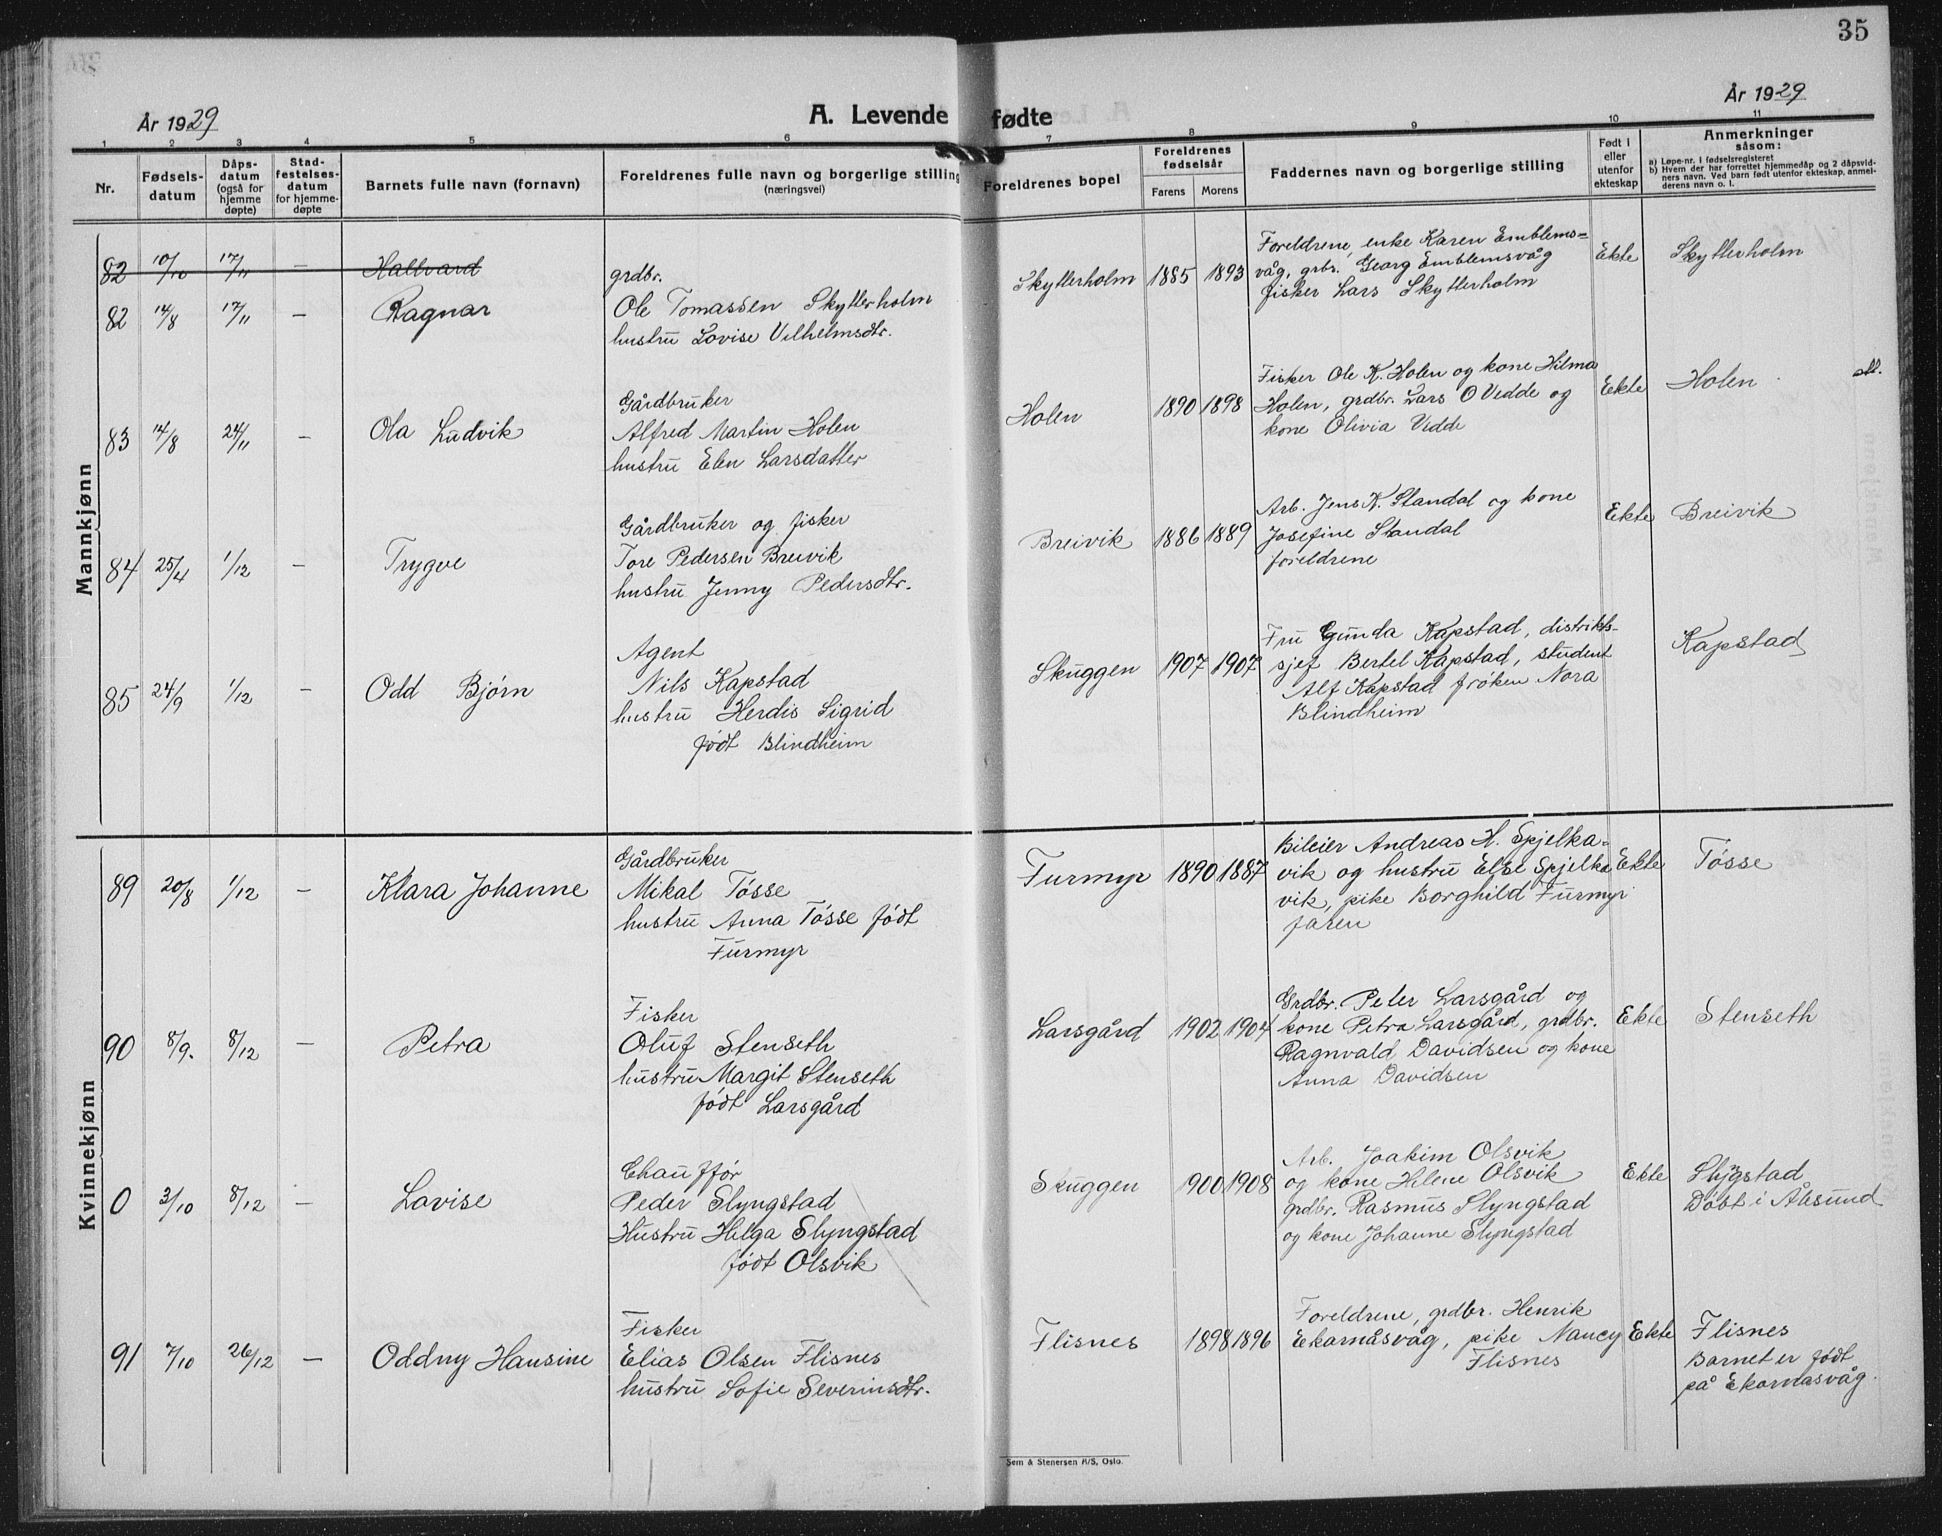 35
År 1929
A. Levende fødte
År 1929
1 2 3 4 5 6 7 8 9 10 11
Nr.
Fødsels-
datum
Dåps-
datum
(også for
hjemme
døpte)
Stad-
festelses-
datum
for hjemme-
døpte
Barnets fulle navn (fornavn)
Foreldrenes fulle navn og borgerlige stilling
(næringsvei)
Foreldrenes bopel
Foreldrenes
fødselsår
Farens Morens
Faddernes navn og borgerlige stilling
Født i
eller
utenfor
ekteskap
Anmerkninger
såsom:
a) Løpe-nr. i fødselsregisteret
b) Hvem der har forrettet hjemmedåp og 2 dåpsvid-
ners navn. Ved barn født utenfor ekteskap, anmel-
derens navn o. l.
Mannkjønn
82 10/10 17/11 — Hallvard
82 14/8 17/11 — Ragnar
grdbr.
Ole Tomassen Skytterholm
hustru Lovise Vilhelmsdtr.
Skytterholm 1885 1893
Foreldrene, enke Karen Emblems=
våg, grbr. Georg Emblemsvåg
fisker Lars Skytterholm
Ekte
Skytterholm
83 14/8 24/11 — Ola Ludvik
Gårdbruker
Alfred Martin Holen
hustru Elen Larsdatter
Holen 1890 1898
Fisker Ole K. Holen og kone Hilma
Holen, grdbr. Lars O Vedde og
kone Olivia Vedde
Ekte
Holen
84 25/4 1/12 — Trygve
Gårdbruker og fisker
Tore Pedersen Breivik
hustru Jenny Pedersdtr.
Breivik 1886 1889
Arb. Jens K. Standal og kone
Josefine Standal
foreldrene
Ekte
Breivik
85 24/9 1/12 — Odd Bjørn
Agent
Nils Kapstad
hustru Herdis Sigrid
født Blindheim
Skuggen 1907 1907
Fru Gunda Kapstad, distrikts-
sjef Bertel Kapstad, student
Alf Kapstad frøken Nora
Blindheim
Kapstad
Kvinnekjønn
89 20/8 1/12 — Klara Johanne
Gårdbruker
Mikal Tøsse
hustru Anna Tøsse født
Furmyr
Furmyr 1890 1887
Bileier Andreas H. Spjelka-
vik og hustru Else Spjelka
vik, pike Borghild Furmyr
faren
Ekte
Tøsse
90 8/9. 8/12 — Petra
Fisker
Oluf Stenseth
hustru Margit Stenseth
født Larsgård
Larsgård 1902 1904
Grdbr. Peter Larsgård og
kone Petra Larsgård, grdbr.
Ragnvald Davidsen og kone
Anna Davidsen
Ekte
Stenseth
0 3/10 8/12 — Lovise
Chauffør
Peder Slyngstad
Hustru Helga Slyngstad
født Olsvik
Skuggen 1900 1908
Arb. Joakim Olsvik
og kone Hilene Olsvik
grdbr. Rasmus Slyngstad
og kone Johanne Slyngstad
Ekte
Slyngstad
Døbt i Ålesund
91 7/10 26/12 — Oddny Hansine
Fisker
Elias Olsen Flisnes
hustru Sofie Severinsdtr.
Flisnes 1898 1896
Foreldrene, grdbr. Henrik
Ekornåsvåg, pike Nancy
Flisnes
Ekte
Flisnes
Barnet er født
på Ekornåsvåg.
Sem & Stenersen A/S, Oslo.